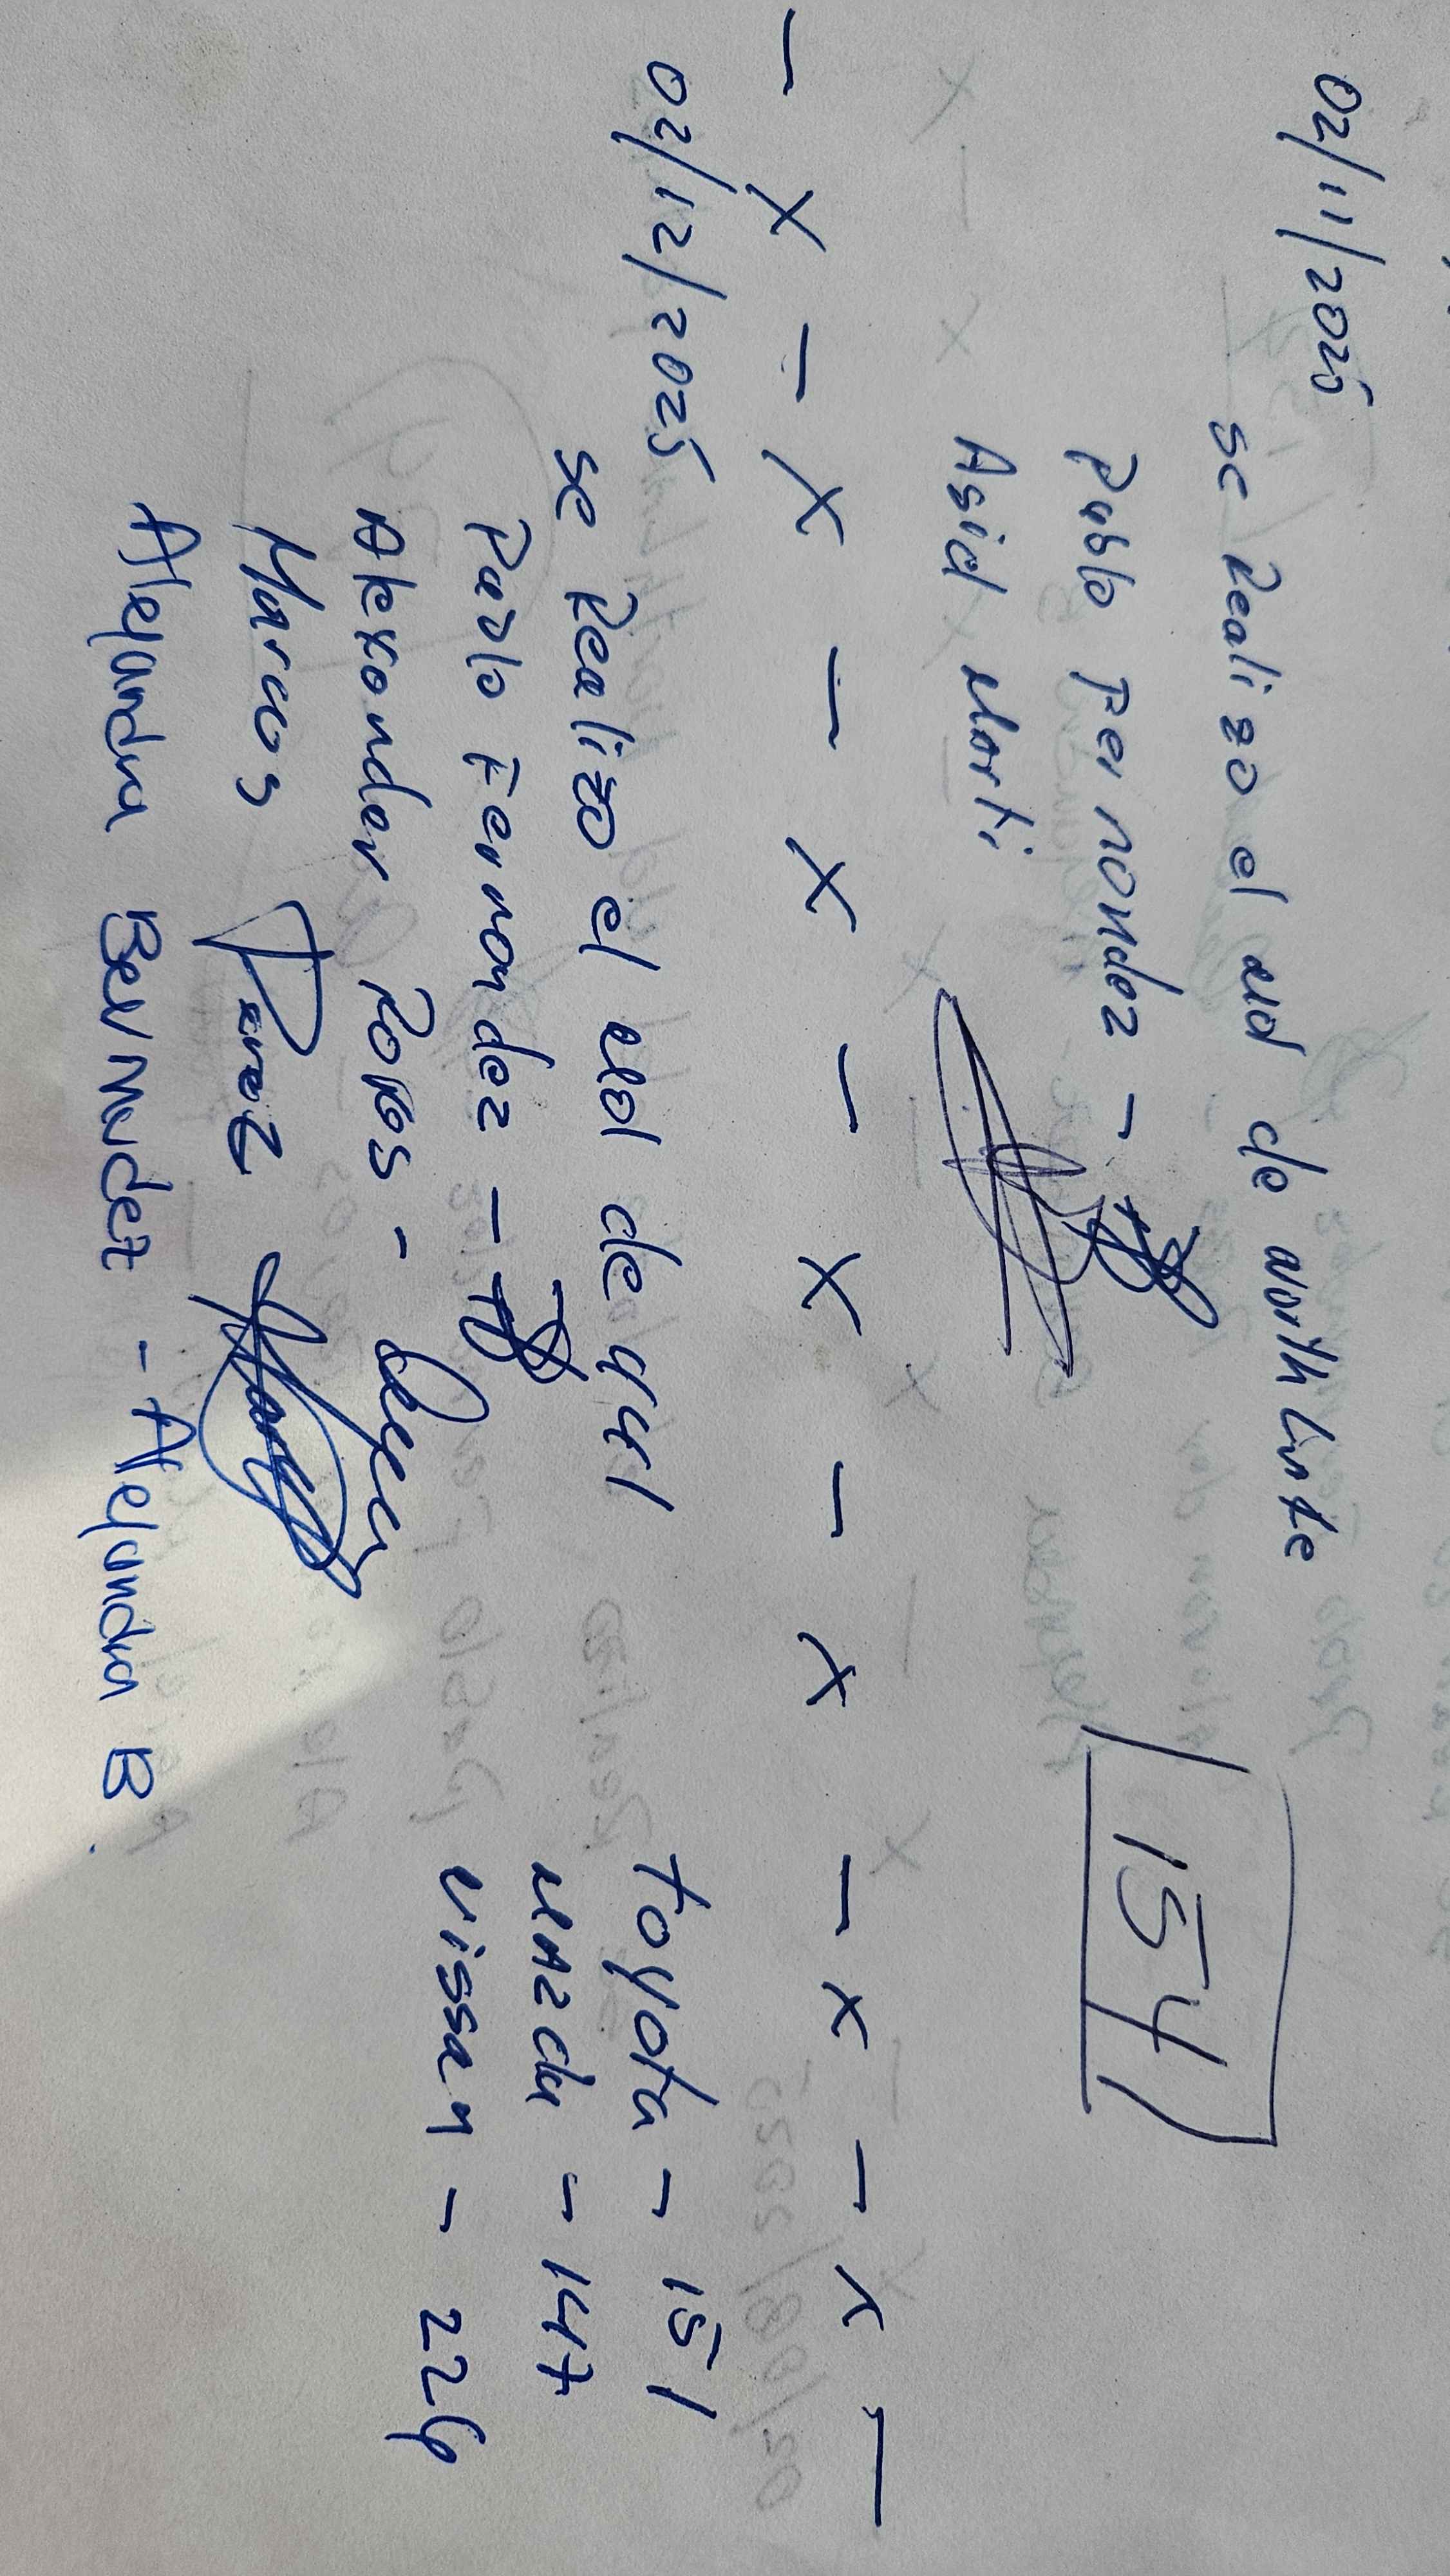 02/11/2025
se Realizo el MD de North Liste
Pablo Fernandez -
Asid Marti
154
- x - x - x - x - x - x - x -
02/12/2025
se Realizo el MD de 441
Pablo Fernandez -
Alexander Robes -
Marcos Perez
Alejandra Bermudez - Alejandra B.
Toyota - 151
Mazda - 147
Nissan - 229